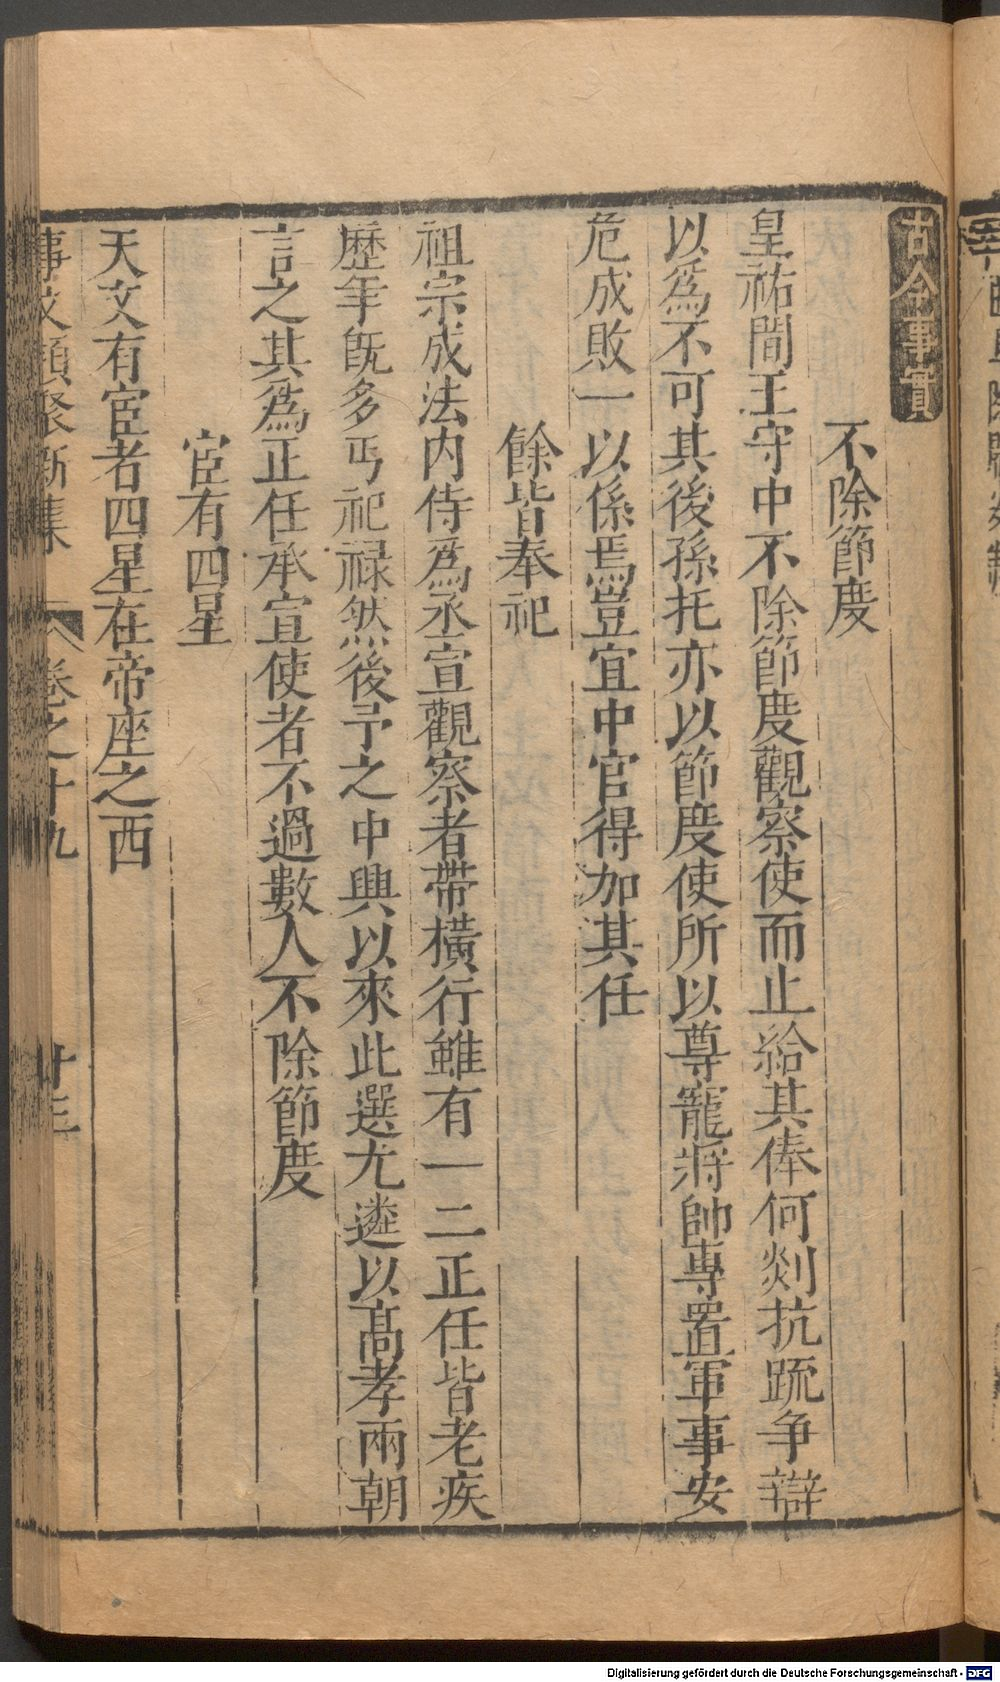 古今事實
不除節度
皇祐間王守中不除節度觀察使而止給其俸何剡抗䟽争辯
以爲不可其後孫托亦以節度使所以尊寵將帥專置軍事安
危成敗一以係焉豈宜中官得加其任
餘皆奉祀
祖宗成法内侍爲丞宣觀察者帶橫行雖有一二正任皆老疾
歷年旣多丐祀祿然後予之中興以來此選尤遴以髙孝兩朝
言之其爲正任承宣使者不過數人不除節度
宦有四星
天文有宦者四星在帝座之西
事文類聚新集 卷之十九 廿三
Digitalisierung gefördert durch die Deutsche Forschungsgemeinschaft - DFG